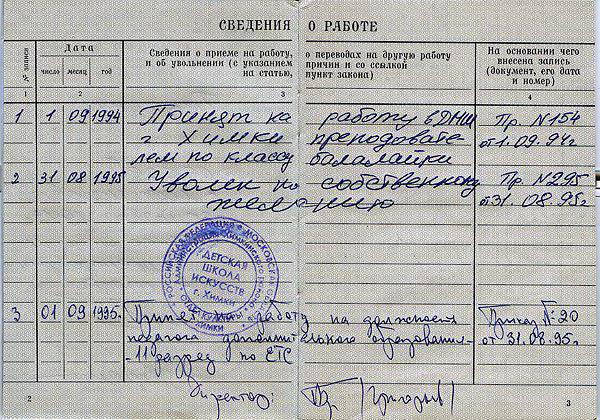 СВЕДЕНИЯ О РАБОТЕ
№ записи
Дата
число месяц год
Сведения о приеме на работу, о переводах на другую работу
и об увольнении (с указанием причин и со ссылкой
на статью, пункт закона)
На основании чего
внесена запись
(документ, его дата
и номер)
1 2 3 4
1 1 09 1994 Принят на работу в ДШИ Пр. №154
г Химки преподавате- от 1.09.94г.
лем по классу балалайки
2 31 08 1995 Уволен по собственному Пр. №295
желанию от 31.08.95г
РОССИЙСКАЯ ФЕДЕРАЦИЯ МОСКОВСКАЯ
ДЕТСКАЯ
ШКОЛА
ИСКУССТВ
г. Химки
3 01 09 1995. на работу на должность Приказ № 20
педагога дополнительного образования- от 31.08.95г.
-11 разряд по ЕТС
Директор:
2 3